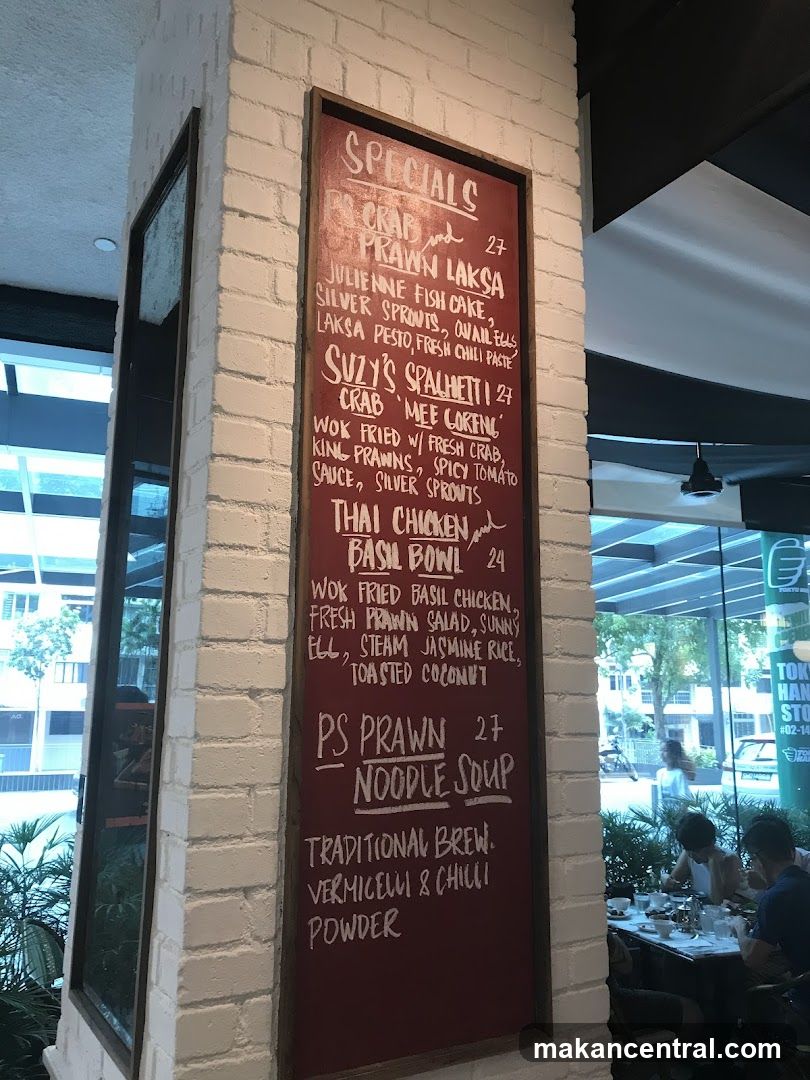 SPECIALS
PS CRAB and 27
PRAWN LAKSA
JULIENNE FISH CAKE,
SILVER SPROUTS, QUAIL EGGS,
LAKSA PESTO, FRESH CHILI PASTE
SUZY'S SPAGHETTI 27
CRAB 'MEE GORENG'
WOK FRIED W/ FRESH CRAB,
KING PRAWNS, SPICY TOMATO
SAUCE, SILVER SPROUTS
THAI CHICKEN and
BASIL BOWL 24
WOK FRIED BASIL CHICKEN,
FRESH PRAWN SALAD, SUNNY
EGG, STEAM JASMINE RICE,
TOASTED COCONUT
PS PRAWN 27
NOODLE SOUP
TRADITIONAL BREW.
VERMICELLI & CHILLI
POWDER
TOK
HAN
STO
#02-14
makancentral.com